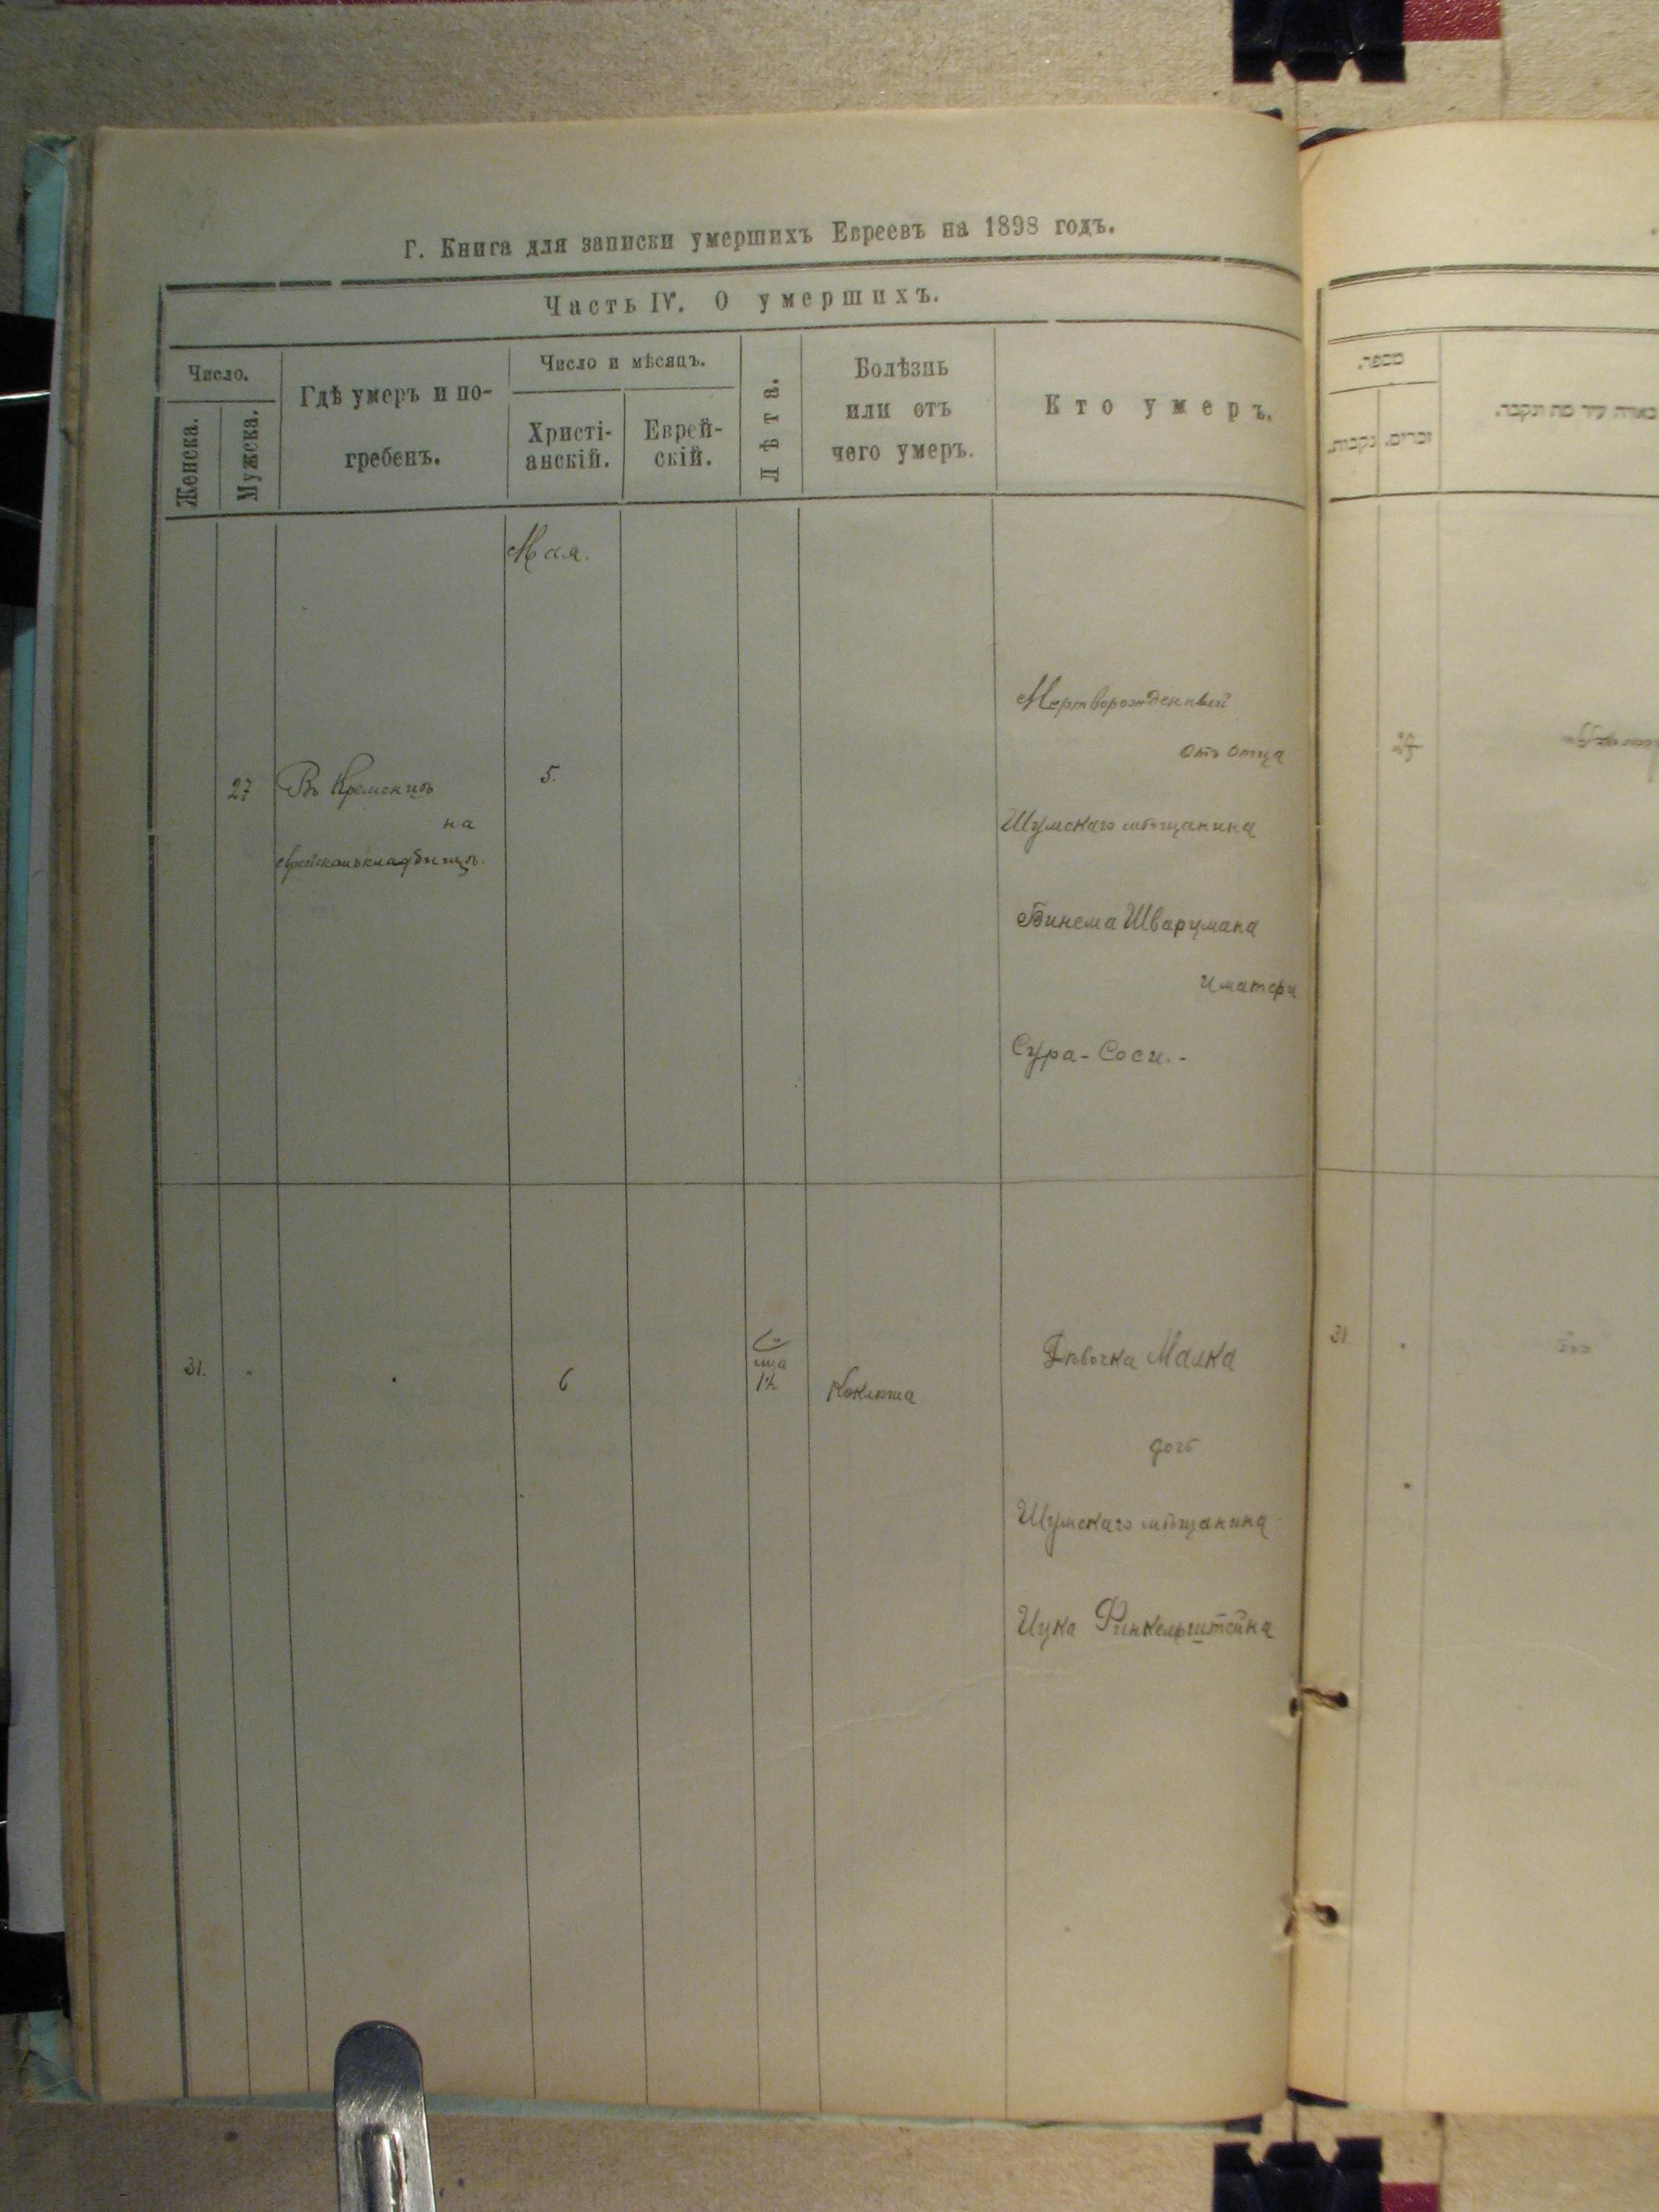 Г. Книга для записки умершихъ Евреевъ на 1898 годъ.
Часть IV. О умершихъ.
Число.
Женска.
Мужска.
Гдѣ умеръ и по-
гребенъ.
Число и мѣсяцъ.
Христі-
анскій.
Еврей-
скій.
Лѣта.
Болѣзнь
или отъ
чего умеръ.
Кто умеръ.
Мая.
27
Въ Кременцѣ
на
еврейскомъ кладбищѣ.
5.
Мертворожденный
отъ отца
Шумскаго мѣщанина
Бинема Шварцмана
и матери
Сура-Соси.-
31.
6
1½
Коклюша
Дѣвочка Малка
дочь
Шумскаго мѣщанина
Ицка Финкельштейна
מספר.
זכרים.
נקבות.
באיזה עיר מת ונקבר.
27
31.